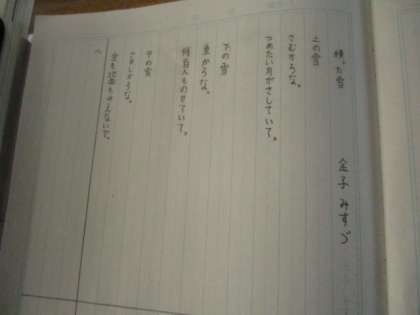 積った雪 金子みすゞ
上の雪
さむかろな。
つめたい月がさしていて。
下の雪
重かろな。
何百人ものせていて。
中の雪
さみしかろな。
空も地面もみえないで。